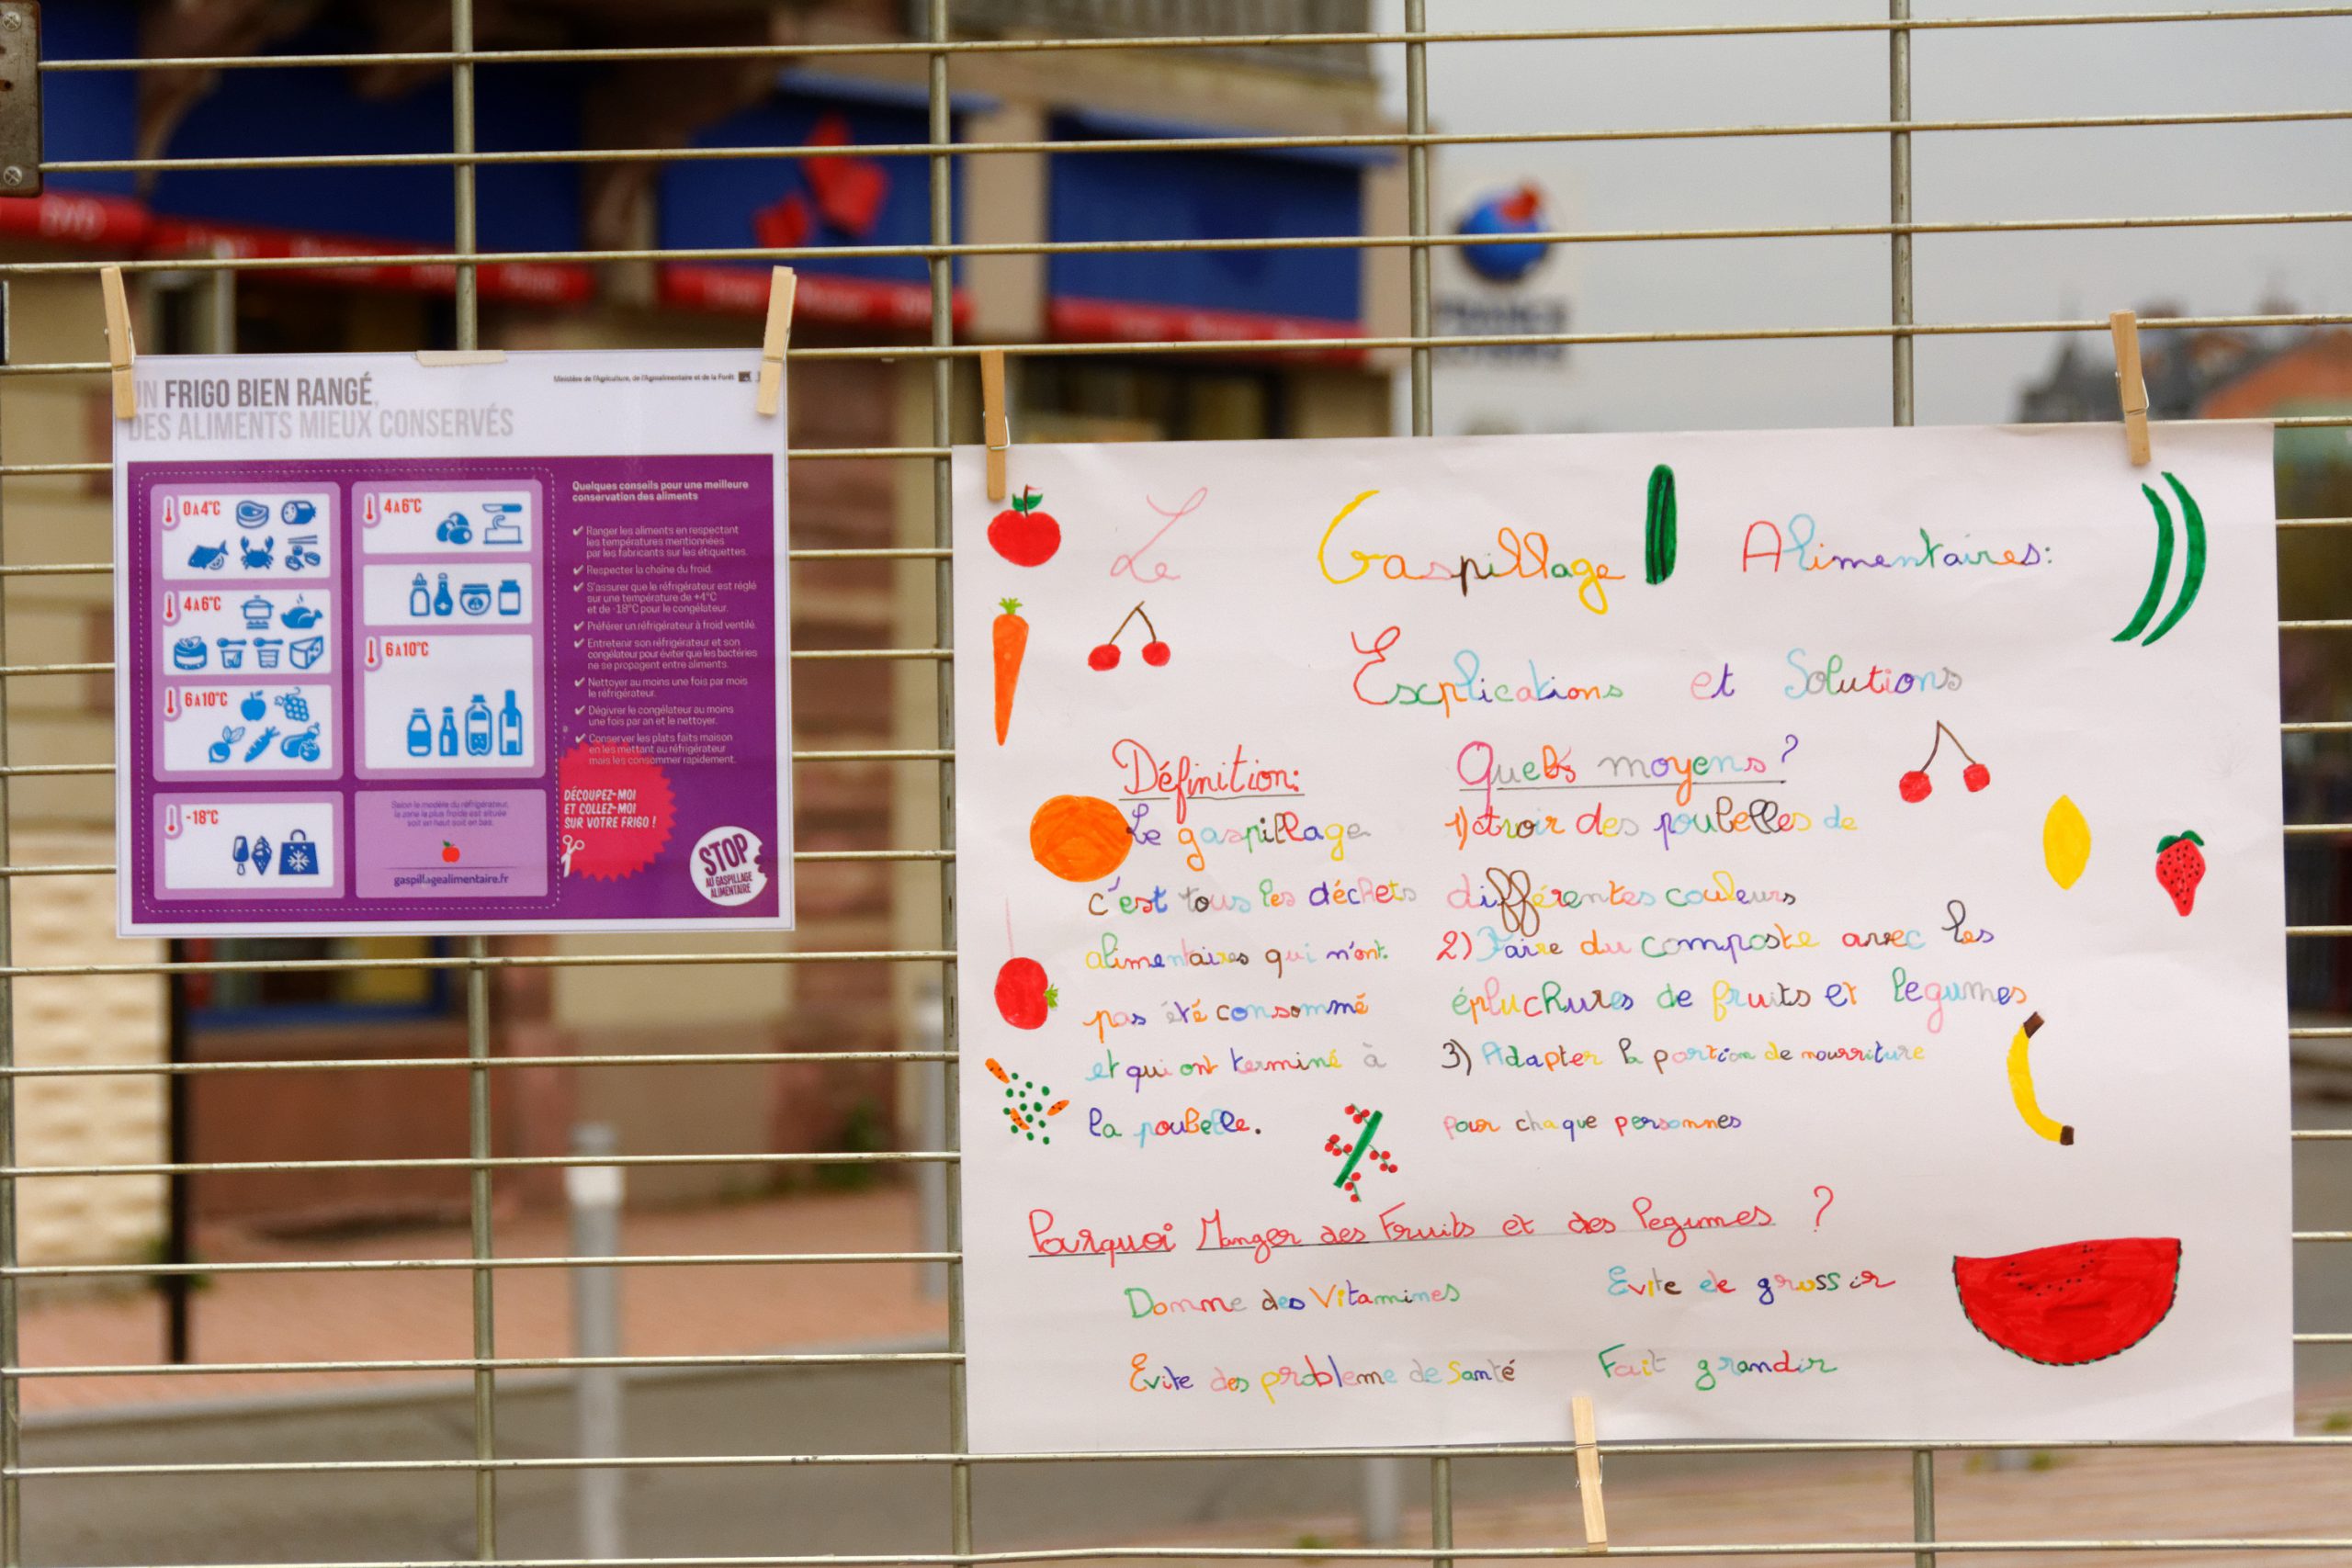 UN FRIGO BIEN RANGÉ,
DES ALIMENTS MIEUX CONSERVÉS
Ministère de l'Agriculture, de l'Agroalimentaire et de la Forêt
0 À 4°C
4 À 6°C
6 À 10°C
-18°C
4 À 6°C
6 À 10°C
Selon le modèle du réfrigérateur,
la zone la plus froide est située
soit en haut soit en bas.
gaspillagealimentaire.fr
Quelques conseils pour une meilleure
conservation des aliments
Ranger les aliments en respectant
les températures mentionnées
par les fabricants sur les étiquettes.
Respecter la chaîne du froid.
S'assurer que le réfrigérateur est réglé
sur une température de +4°C
et de -18°C pour le congélateur.
Préférer un réfrigérateur à froid ventilé.
Entretenir son réfrigérateur et son
congélateur pour éviter que les bactéries
ne se propagent entre aliments.
Nettoyer au moins une fois par mois
le réfrigérateur.
Dégivrer le congélateur au moins
une fois par an et le nettoyer.
Conserver les plats faits maison
en les mettant au réfrigérateur
mais les consommer rapidement.
DÉCOUPEZ-MOI
ET COLLEZ-MOI
SUR VOTRE FRIGO !
STOP
AU GASPILLAGE
ALIMENTAIRE
Le Gaspillage Alimentaires:
Explications et Solutions
Définition:
Le gaspillage
c'est tous les déchets
alimentaires qui n'ont
pas été consommé
et qui ont terminé à
la poubelle.
Quels moyens ?
1) avoir des poubelles de
différentes couleurs
2) Faire du composte avec les
épluchures de fruits et legumes
3) Adapter la portion de nourriture
pour chaque personnes
Pourquoi Manger des Fruits et des legumes ?
Donne des Vitamines
Evite de grossir
Evite des probleme de Santé
Fait grandir